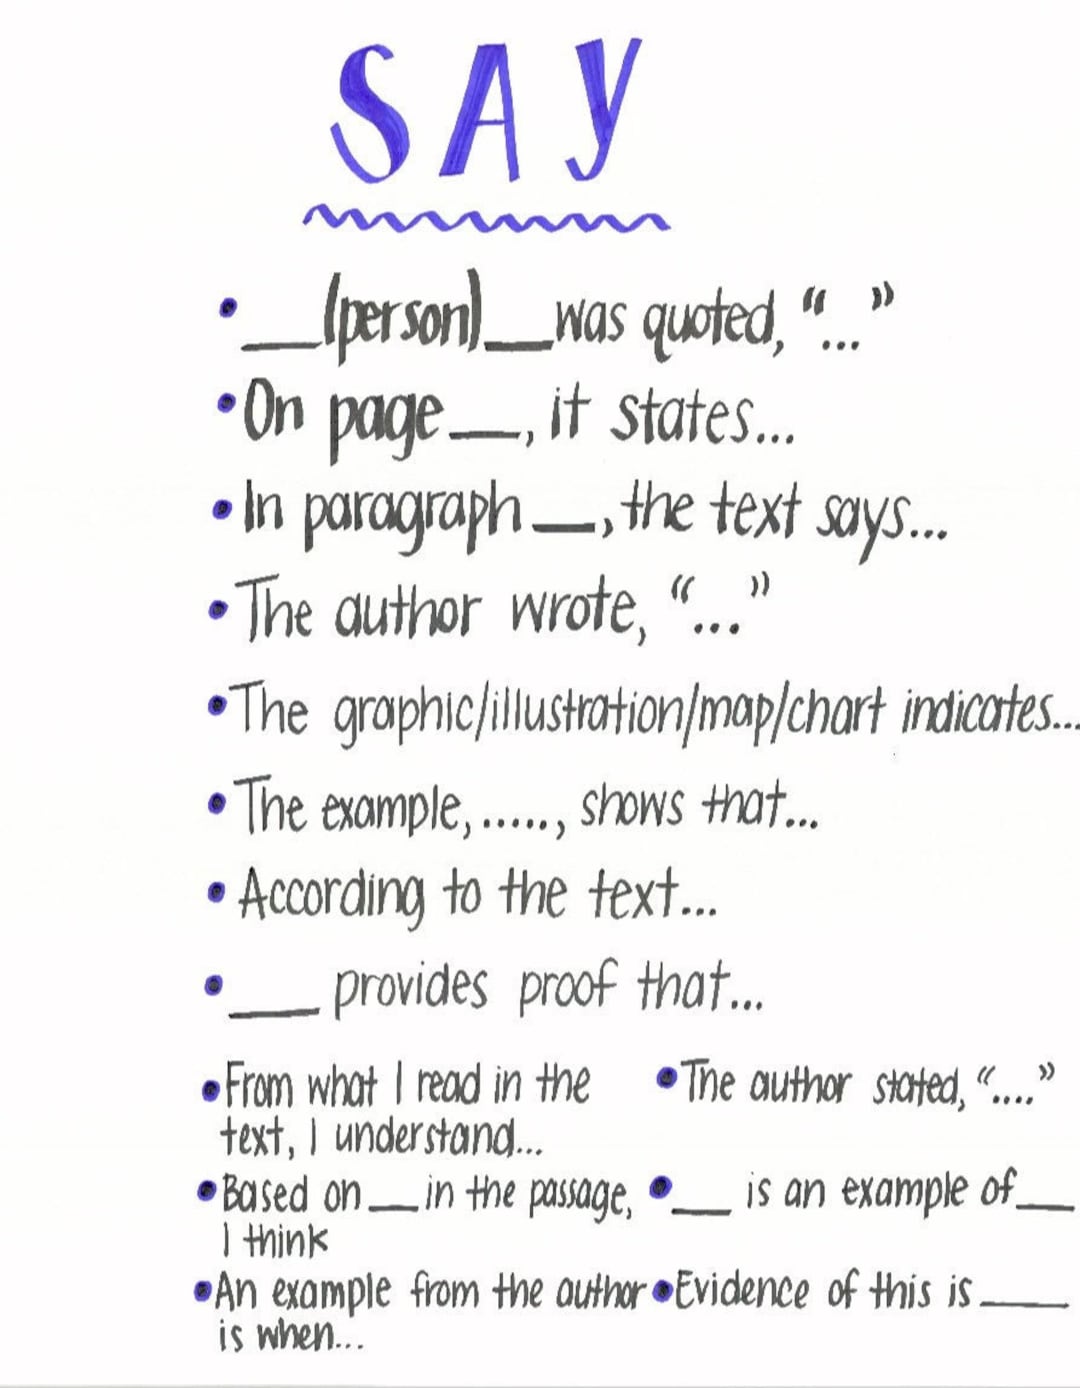 SAY
• ___(person)___was quoted, “...”
• On page ___, it states...
• In paragraph ___, the text says...
• The author wrote, “...”
• The graphic/illustration/map/chart indicates...
• The example, ....., shows that...
• According to the text...
• ____ provides proof that...
• From what I read in the
text, I understand...
• The author stated, “....”
• Based on ___ in the passage,
I think
• ___ is an example of ___
• An example from the author
is when...
• Evidence of this is ____